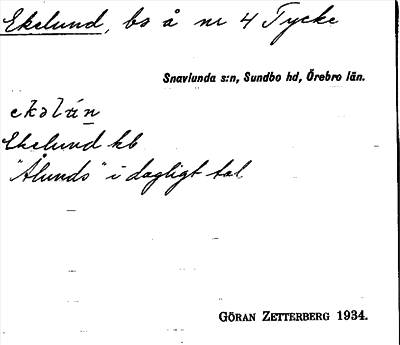 Ekelund, bs å nr 4 Tycke
Snavlunda s:n, Sundbo hd, Örebro län.
ekəlún
Ekelund kb
"Ålunds" i dagligt tal
GÖRAN ZETTERBERG 1934.